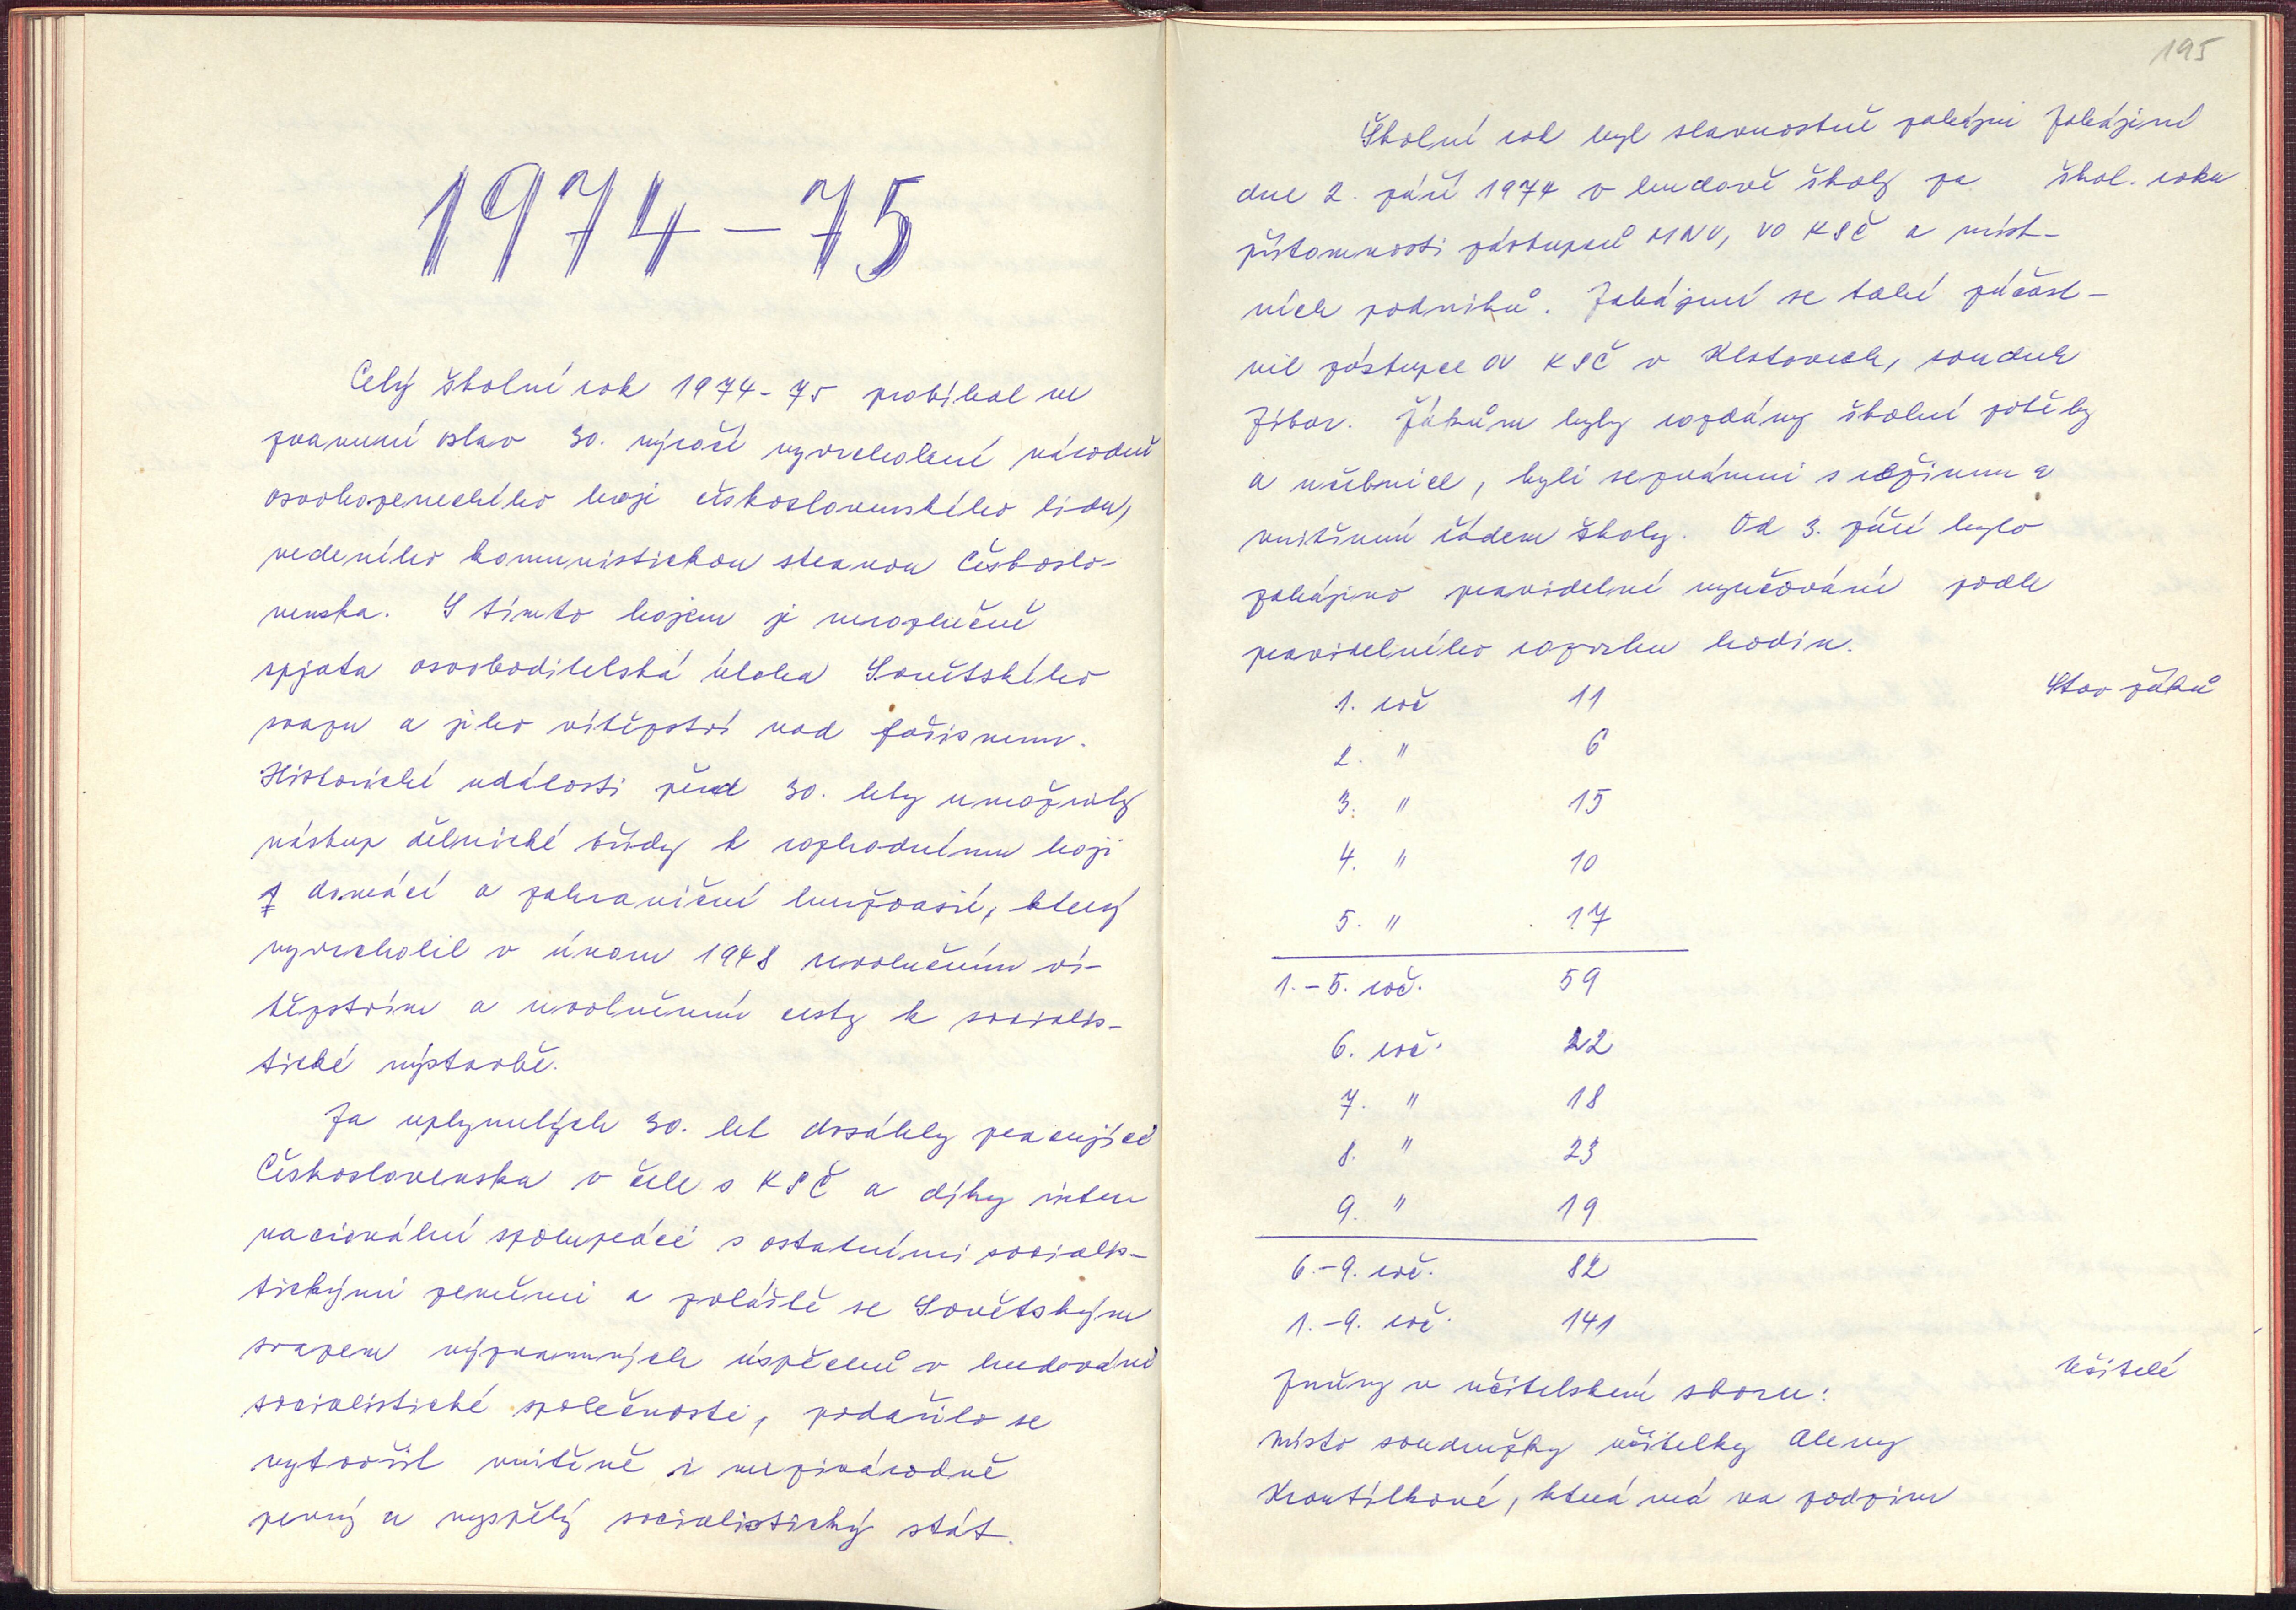 1974-75
Celý školní rok 1974-75 probíhal ve
znamení oslav 30. výročí vyvrcholení národně
osvobozeneckého boje československého lidu,
vedeného komunistickou stranou Českoslo-
venska. S tímto bojem je nerozlučně
spjata osvoboditelská úloha Sovětského
svazu a jeho vítězství nad fašismem.
Historické události před 30. lety umožnily
nástup dělnické třídy k rozhodnému boji
s domácí a zahraniční buržoasií, který
vyvrcholil v únoru 1948 revolučním ví-
tězstvím a uvolněním cesty k socialis-
tické výstavbě.
Za uplynulých 30. let dosáhly pracující
Československa v čele s KSČ a díky inter
nacionální spolupráci s ostatními socialis-
tickými zeměmi a zvláště se Sovětským
svazem významných úspěchů v budování
socialistické společnosti, podařilo se
vytvořit vnitřně i mezinárodně
pevný a vyspělý socialistický stát.
195
Školní rok byl slavnostně zahájen
Zahájení
dne 2. září 1974 v budově školy za
škol. roku
přítomnosti zástupců MNV, VO KSČ a míst-
ních podniků. Zahájení se také zúčast-
nil zástupce OV KSČ v Klatovech, soudruh
Zíbar. Žákům byly rozdány školní potřeby
a učebnice, byli seznámeni s režimem a
vnitřním řádem školy. Od 3. září bylo
zahájeno pravidelné vyučování podle
pravidelného rozvrhu hodin.
Stav žáků
1. roč 11
2. " 6
3. " 15
4. " 10
5. " 17
1.-5. roč. 59
6. roč. 22
7. " 18
8. " 23
9. " 19
6.-9. roč. 82
1.-9. roč. 141
Učitelé
Změny v učitelském sboru:
Místo soudružky učitelky Aleny
Kroutilkové, která má na podzim